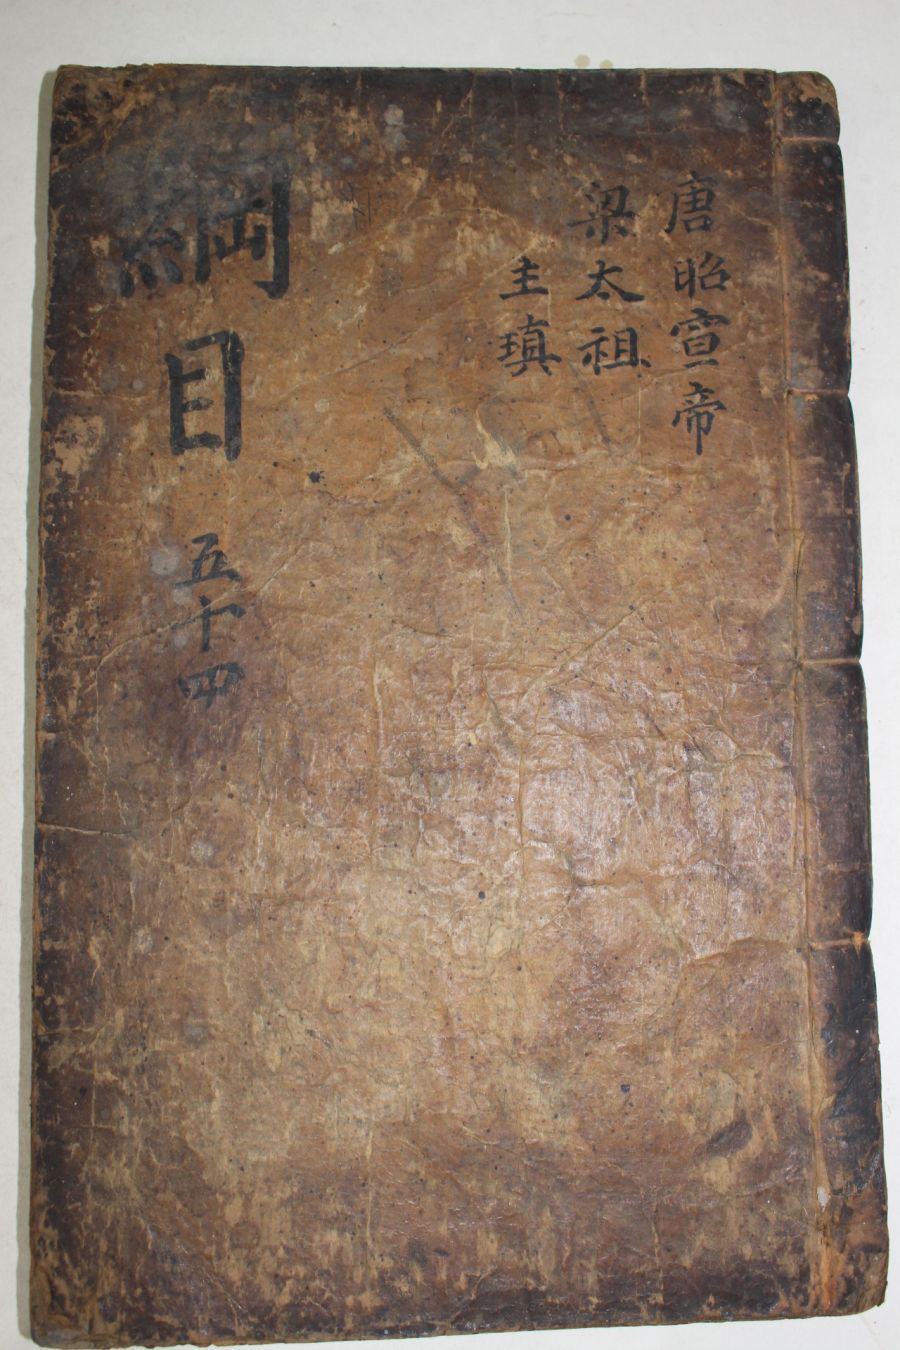 唐昭宣帝
梁太祖
主瑱
綱目
五十四